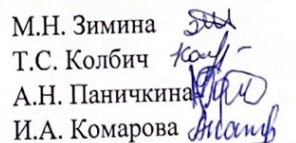 М.Н. Зимина
Т.С. Колбич
А.Н. Паничкина
И.А. Комарова